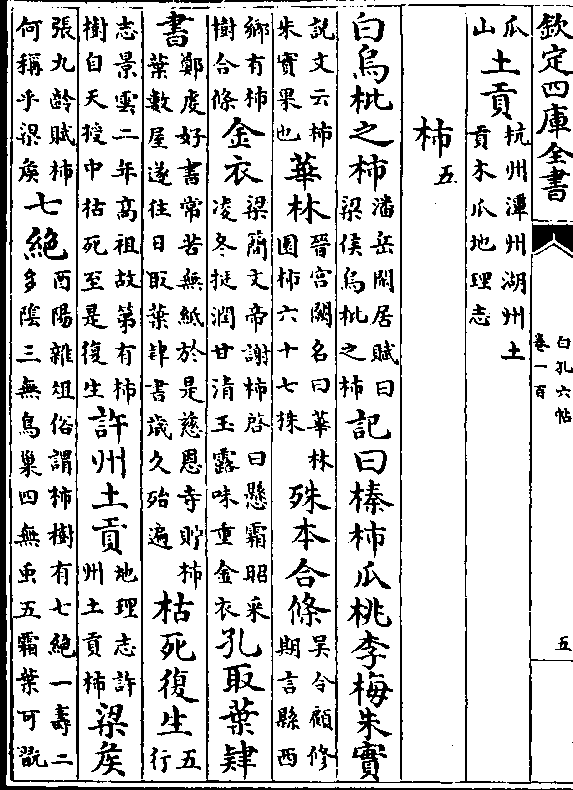 欽定四庫全書
白孔六帖
卷一百
五
瓜
山
土貢
杭州潭州湖州土
貢木瓜地理志
柿五
白烏枇之柿
潘岳閒居賦曰
梁侯烏枇之柿
記曰榛柿瓜桃李梅朱實
説文云柿
朱實果也
華林
晉宮闕名曰華林
園柿六十七株
殊本合條
吴令顧修
期言縣西
鄉有柿
樹合條
金衣
梁簡文帝謝柿啓曰懸霜昭采
凌冬挺潤甘清玉露味重金衣
孔取葉肄
書
鄭度好書常苦無紙於是慈恩寺貯柿
葉數屋遂往日取葉肄書歳久殆遍
枯死復生
五
行
志景雲二年高祖故第有柿
樹自天授中枯死至是復生
許州土貢
地理志許
州土貢柿
梁矦
張九齡賦柿
何稱乎梁矦
七絕
酉陽雜俎俗謂柿樹有七絕一壽二
多陰三無鳥巢四無虫五霜葉可翫